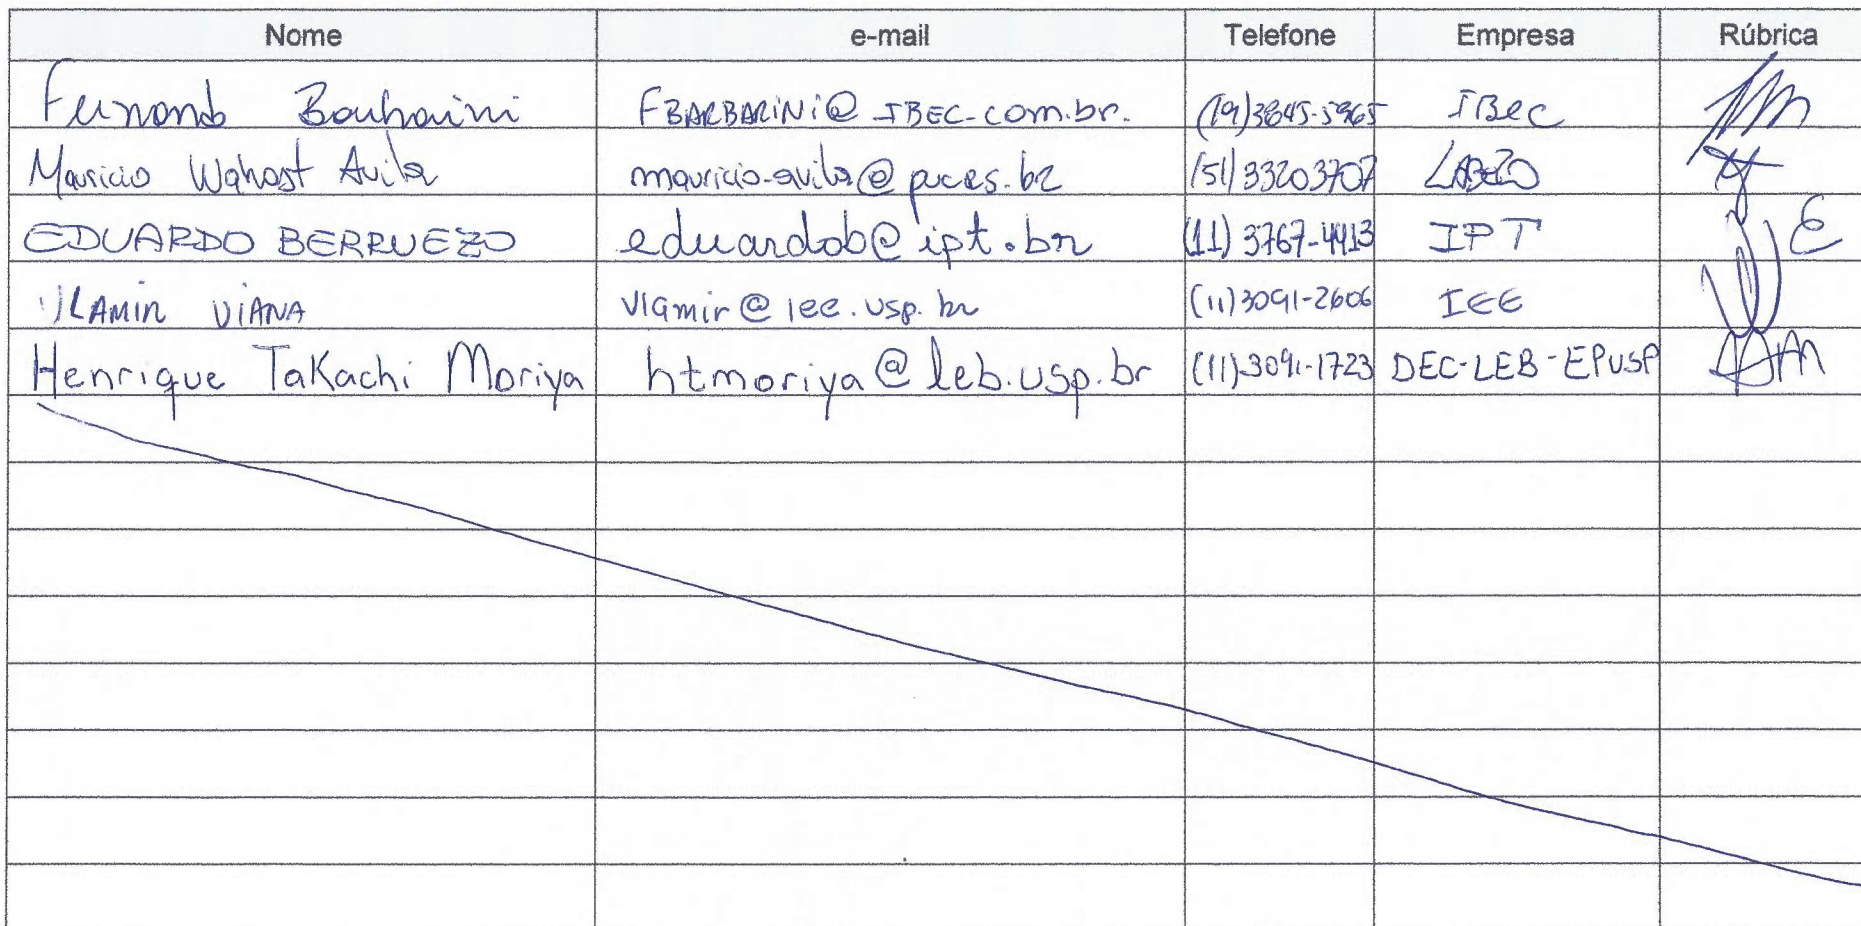 Nome e-mail Telefone Empresa Rúbrica
Fernando Barbarini FBARBARINI@IBEC-com.br. (19)3845-5965 IBec
Mauricio Avila mauricio.avila@pucrs.br (51)33203707 LABELO
EDUARDO BERRUEZO eduardob@ipt.br (11) 3767-4413 IPT
VLAMIR VIANA vlamir@iee.usp.br (11)3091-2606 IEE
Henrique Takachi Moriya htmoriya@leb.usp.br (11)3091-1723 DEC-LEB-EPUSP